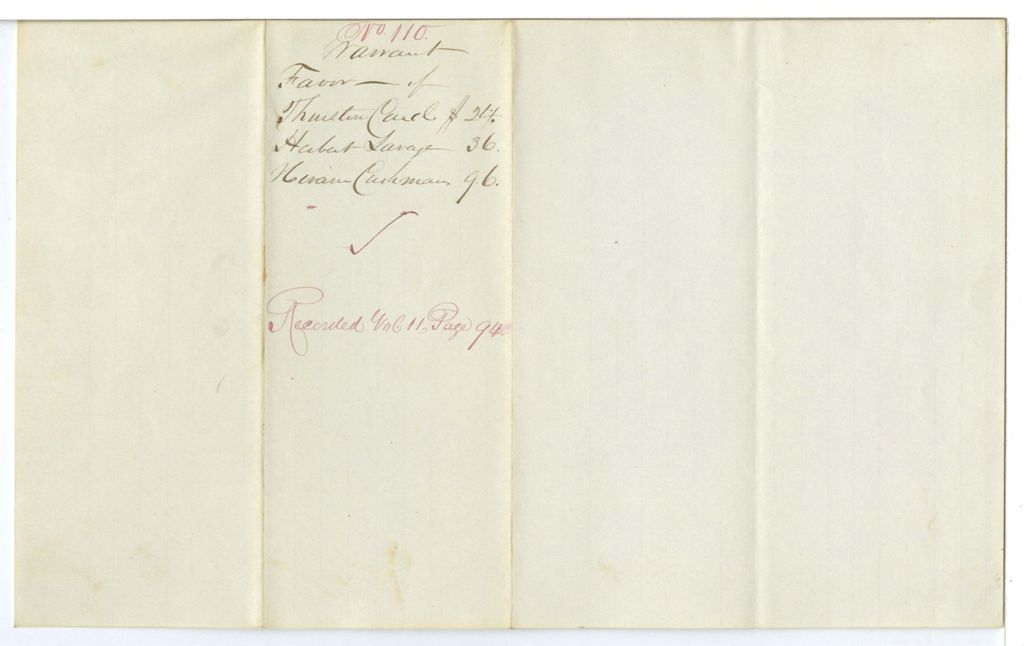 No. 110.
Warrant
Favor of
Thurston Card $ 24.
Herbert Savage 36.
Hiram Cushman 96.
Recorded Vol 11, Page 94